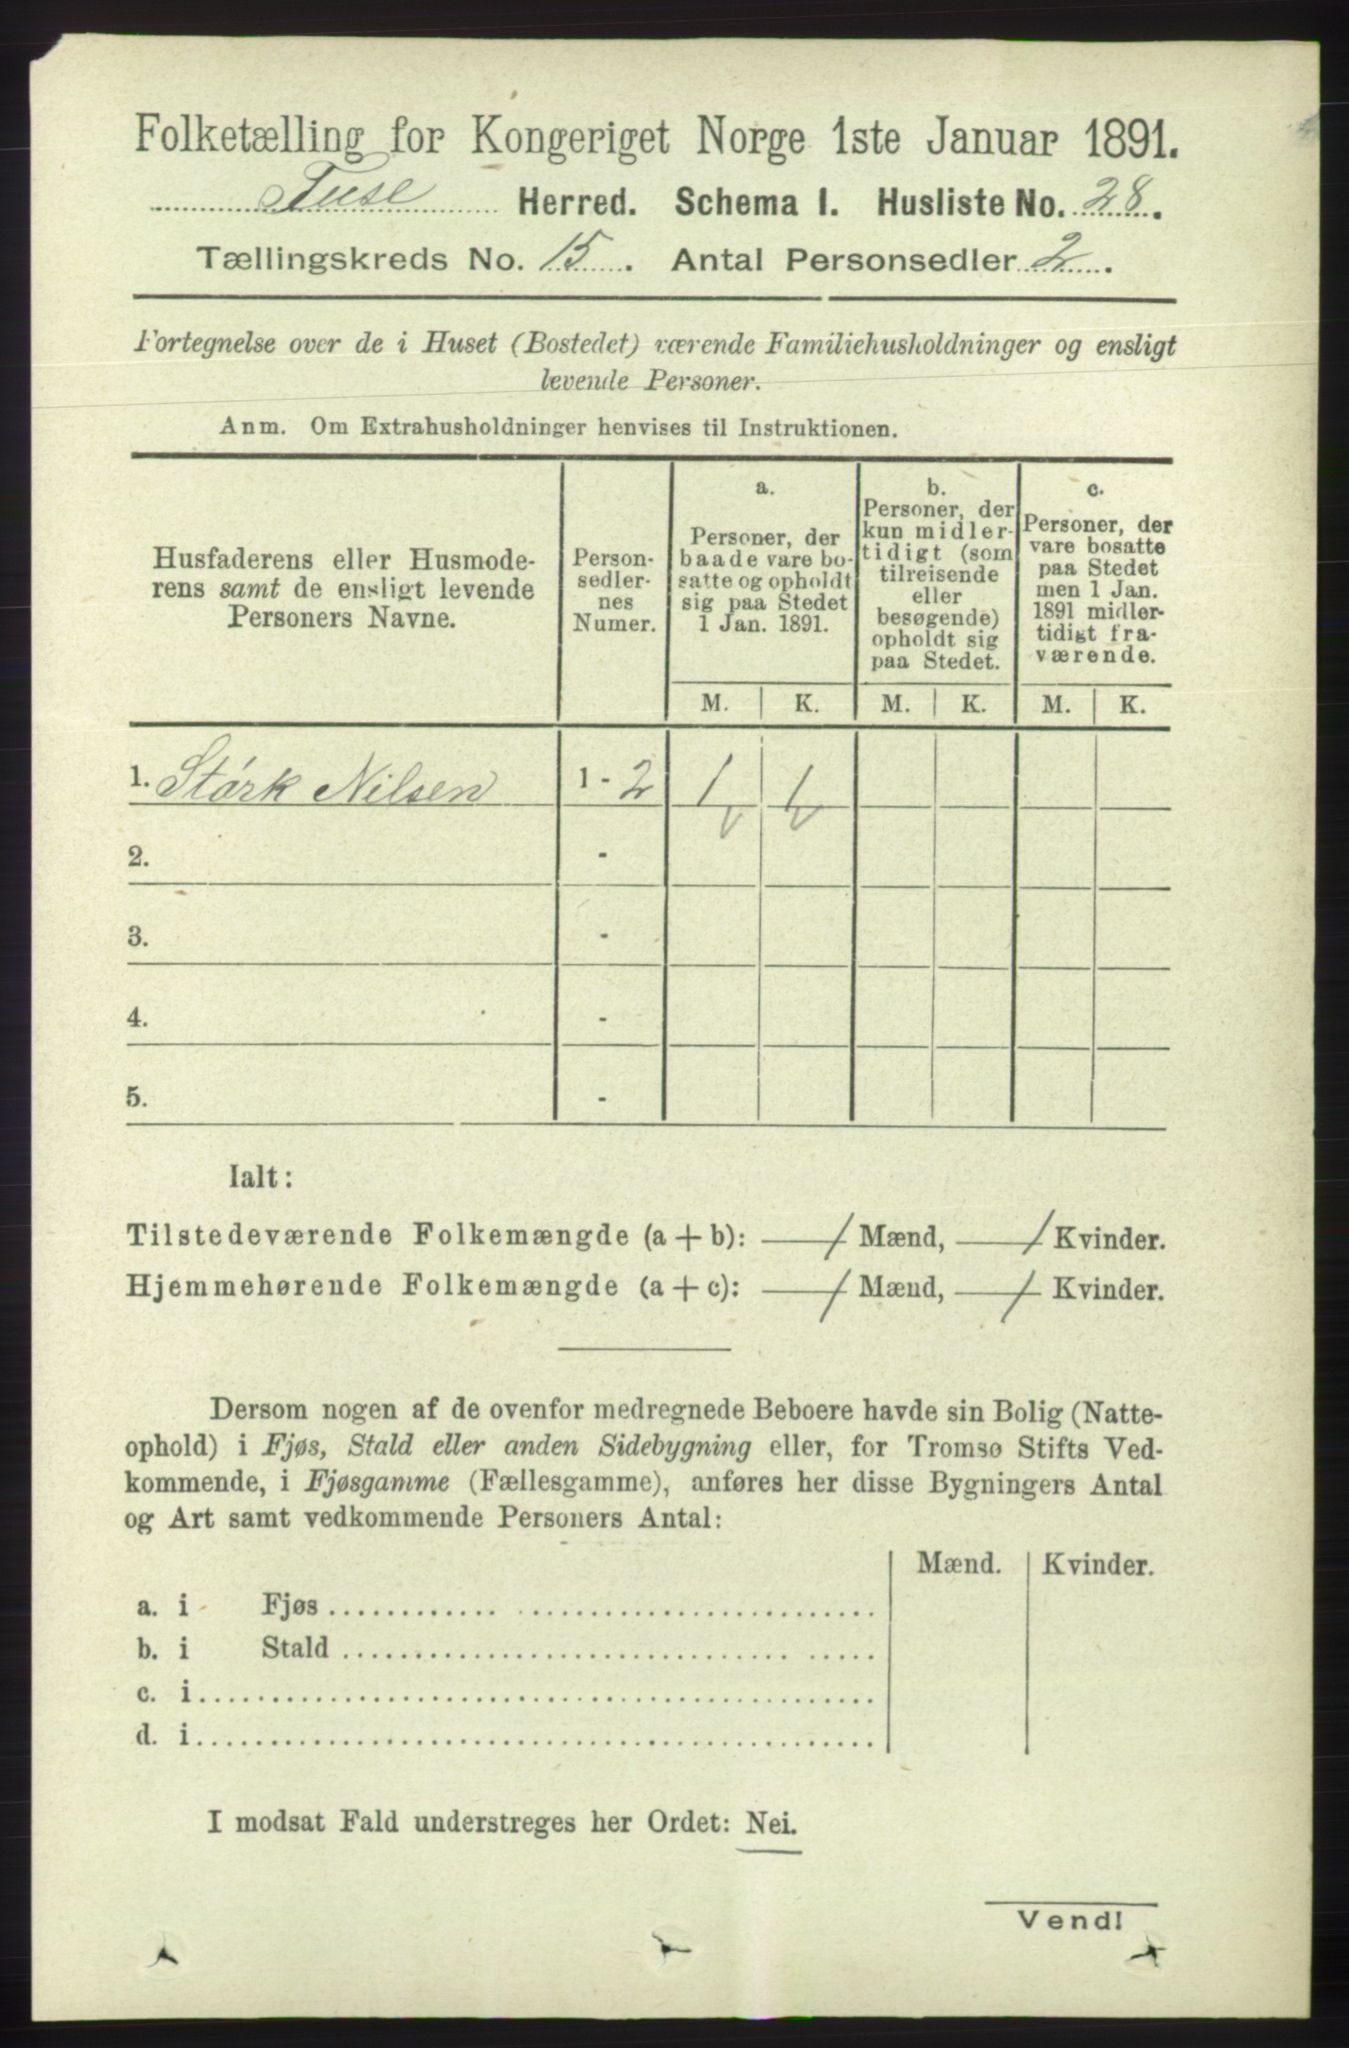 Folketælling for Kongeriget Norge 1ste Januar 1891.
Fuse Herred. Schema I. Husliste No. 28.
Tællingskreds No. 15. Antal Personsedler 2.
Fortegnelse over de i Huset (Bostedet) værende Familiehusholdninger og ensligt
levende Personer.
Anm. Om Extrahusholdninger henvises til Instruktionen.
Husfaderens eller Husmode-
rens samt de ensligt levende
Personers Navne.
Person-
sedler-
nes
Numer.
a.
Personer, der
baade vare bo-
satte og opholdt
sig paa Stedet
1 Jan. 1891.
b.
Personer, der
kun midler-
tidigt (som
tilreisende
eller
besøgende)
opholdt sig
paa Stedet.
c.
Personer, der
vare bosatte
paa Stedet
men 1 Jan.
1891 midler-
tidigt fra-
værende.
M. K. M. K. M. K.
1. Størk Nilsen 1 - 2 1 1
2. -
3. -
4. -
5. -
Ialt:
Tilstedeværende Folkemængde (a + b): 1 Mænd, 1 Kvinder.
Hjemmehørende Folkemængde (a + c): 1 Mænd, 1 Kvinder.
Dersom nogen af de ovenfor medregnede Beboere havde sin Bolig (Natte-
ophold) i Fjøs, Stald eller anden Sidebygning eller, for Tromsø Stifts Ved-
kommende, i Fjøsgamme (Fællesgamme), anføres her disse Bygningers Antal
og Art samt vedkommende Personers Antal:
Mænd. Kvinder.
a. i Fjøs
b. i Stald
c. i
d. i
I modsat Fald understreges her Ordet: Nei.
Vend!